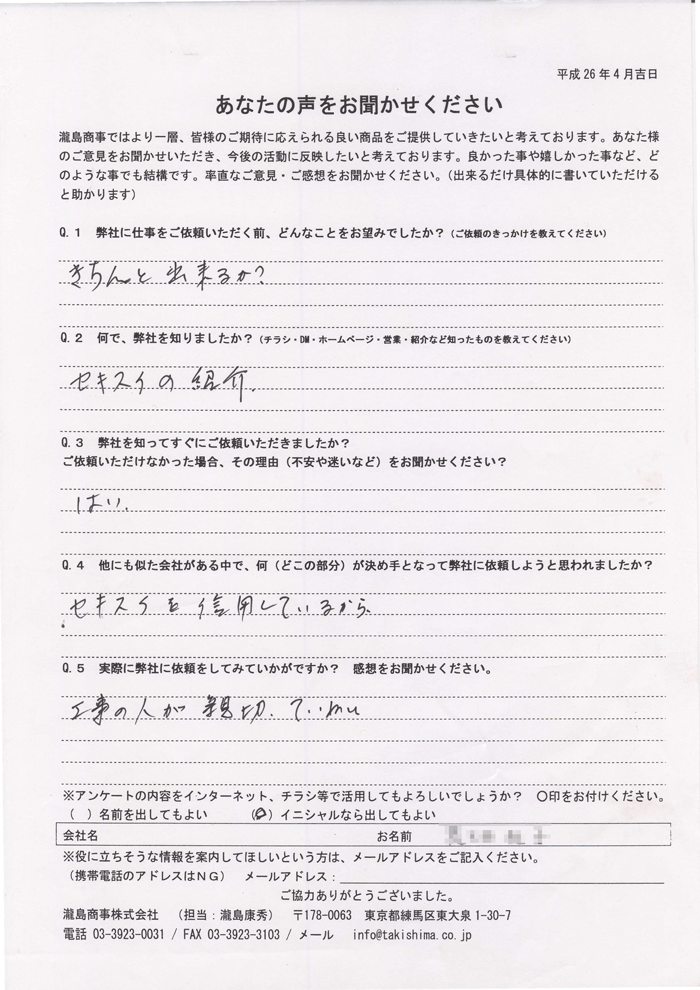 平成26年4月吉日
あなたの声をお聞かせください
瀧島商事ではより一層、皆様のご期待に応えられる良い商品をご提供していきたいと考えております。あなた様
のご意見をお聞かせいただき、今後の活動に反映したいと考えております。良かった事や嬉しかった事など、ど
のような事でも結構です。率直なご意見・ご感想をお聞かせください。(出来るだけ具体的に書いていただける
と助かります)
Q.1 弊社に仕事をご依頼いただく前、どんなことをお望みでしたか?(ご依頼のきっかけを教えてください)
きちんと出来るか?
Q.2 何で、弊社を知りましたか?(チラシ・DM・ホームページ・営業・紹介など知ったものを教えてください)
セキスイの紹介.
Q.3 弊社を知ってすぐにご依頼いただきましたか?
ご依頼いただけなかった場合、その理由(不安や迷いなど)をお聞かせください?
はい.
Q.4 他にも似た会社がある中で、何(どこの部分)が決め手となって弊社に依頼しようと思われましたか?
セキスイを信用しているから.
Q.5 実際に弊社に依頼をしてみていかがですか? 感想をお聞かせください。
工事の人が親切.ていねい
※アンケートの内容をインターネット、チラシ等で活用してもよろしいでしょうか? 〇印をお付けください。
( )名前を出してもよい (〇)イニシャルなら出してもよい
会社名 お名前
※役に立ちそうな情報を案内してほしいという方は、メールアドレスをご記入ください。
(携帯電話のアドレスはNG) メールアドレス:
ご協力ありがとうございました。
瀧島商事株式会社 (担当:瀧島康秀) 〒178-0063 東京都練馬区東大泉1-30-7
電話 03-3923-0031 / FAX 03-3923-3103 / メール info@takishima.co.jp